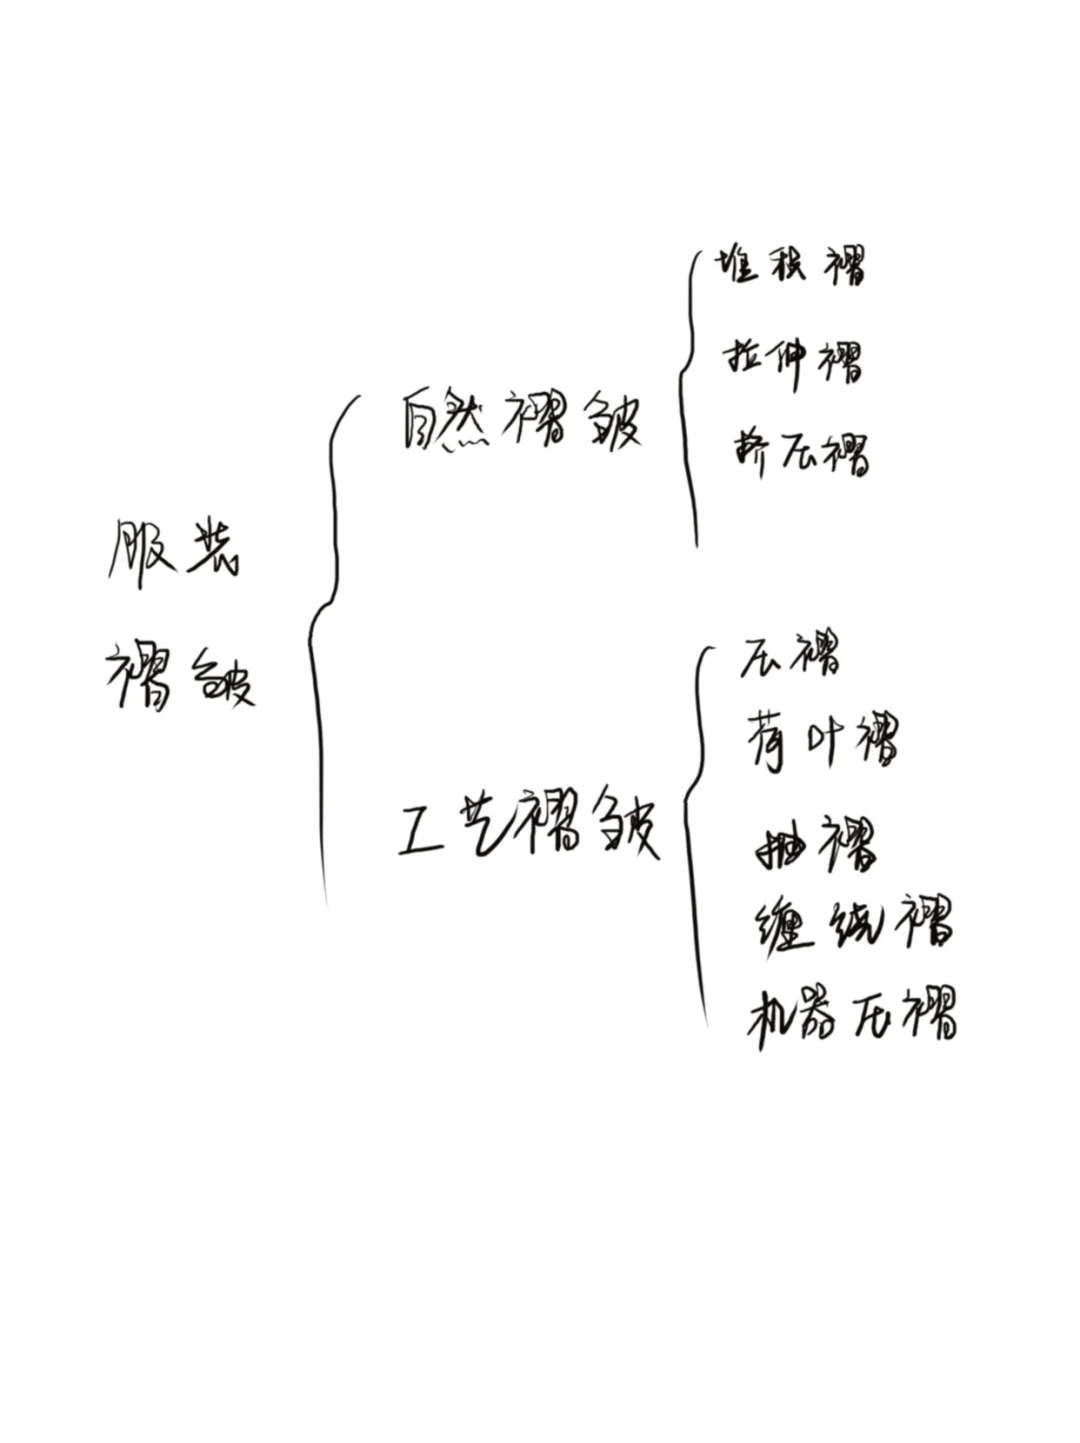 服装
褶皱
自然褶皱
堆积褶
拉伸褶
挤压褶
工艺褶皱
压褶
荷叶褶
抽褶
缠绕褶
机器压褶